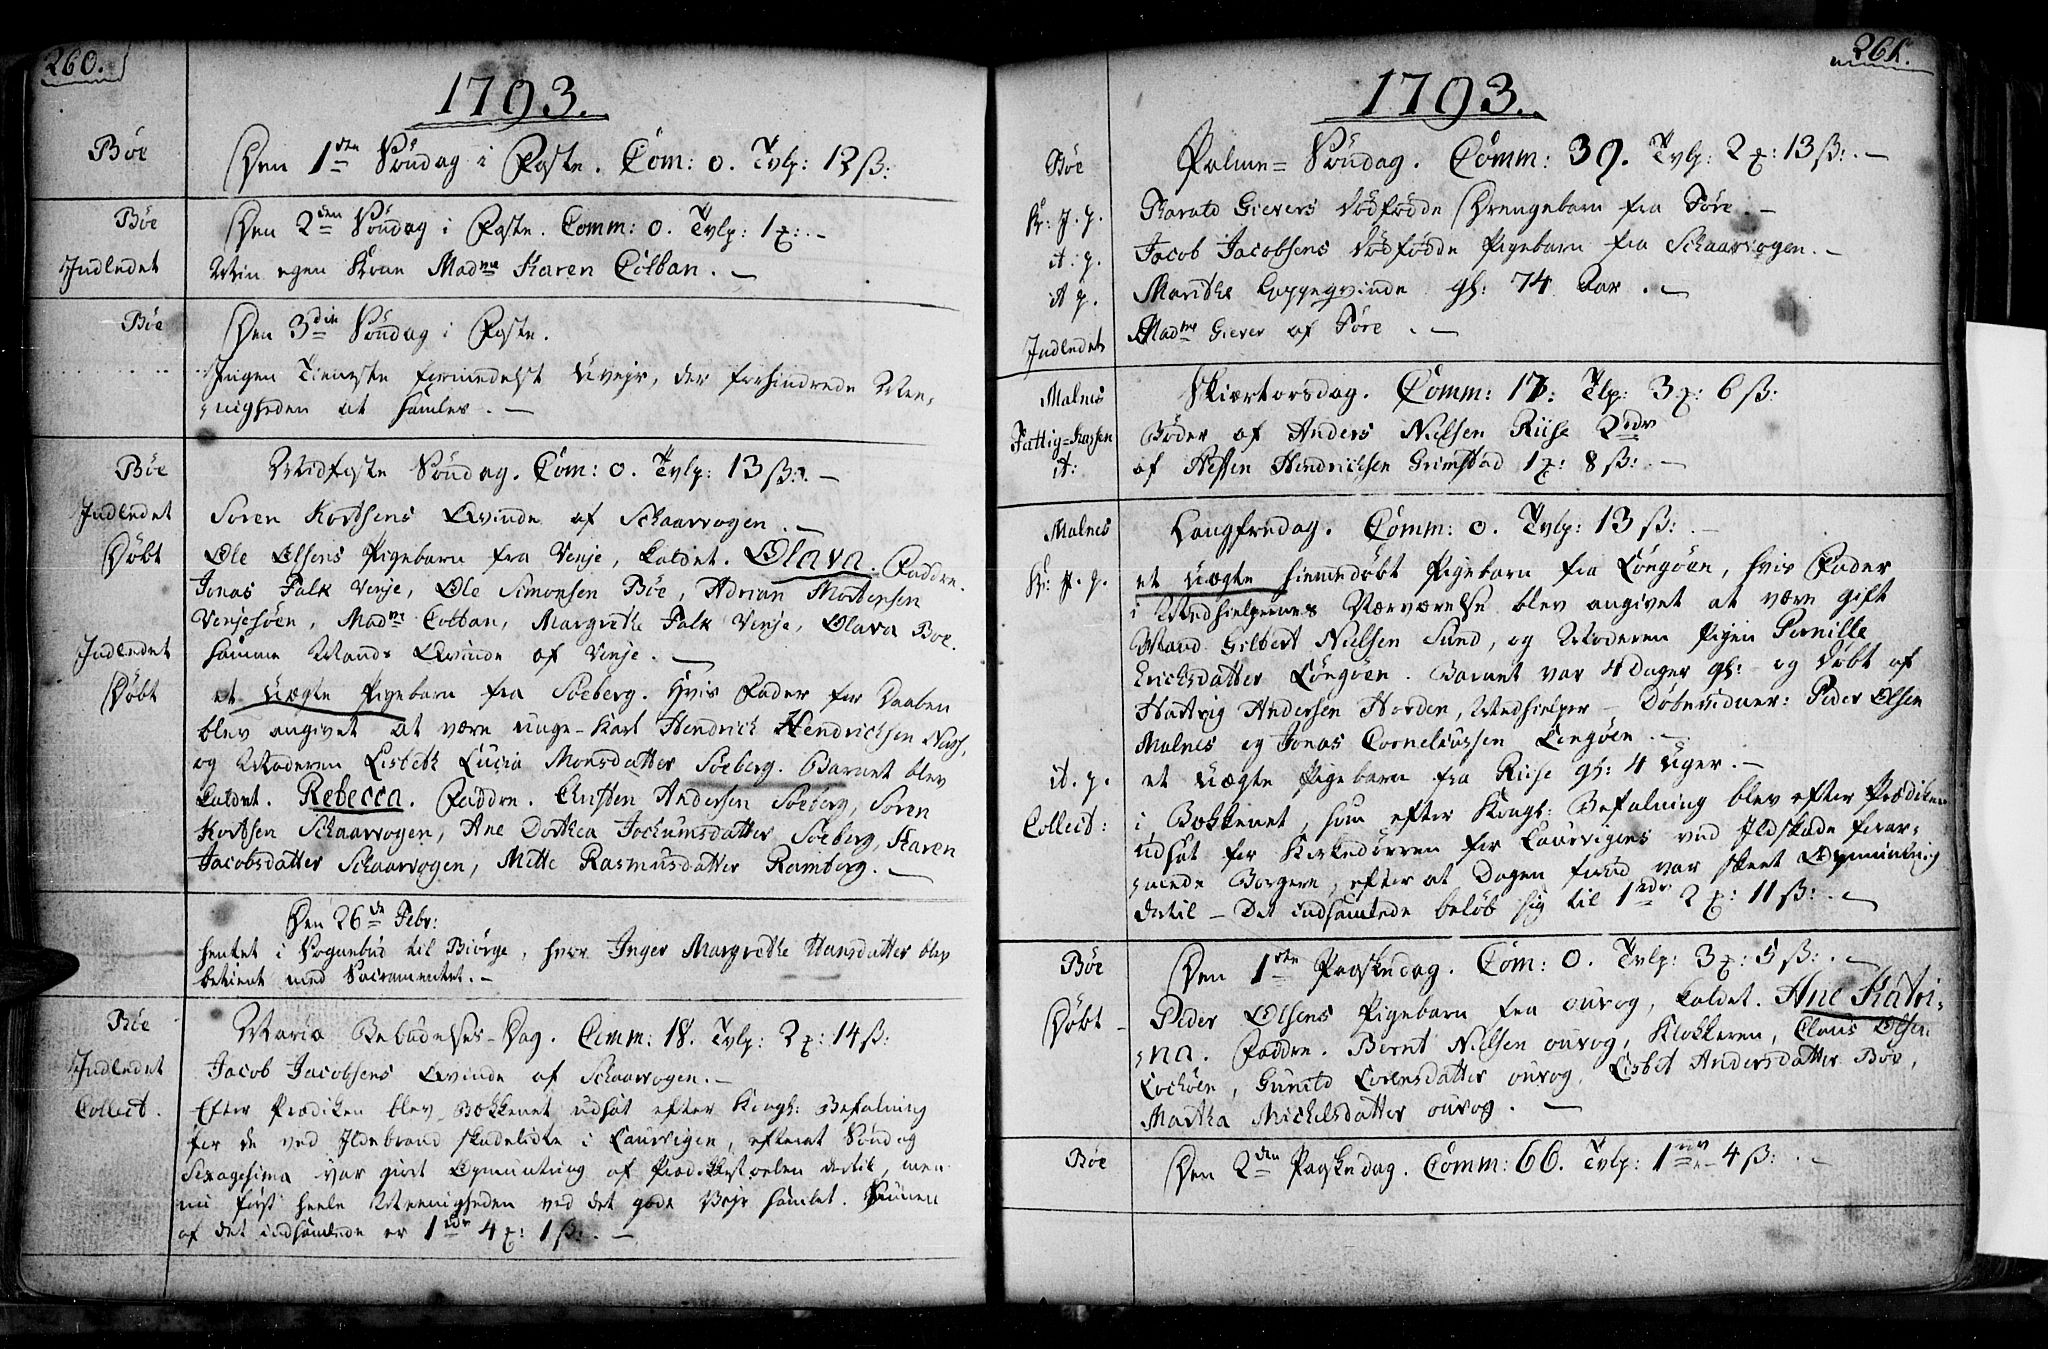 260.
1793.
Bøe
Den 1ste Søndag i Faste. Com: 0. Tvlp: 12 ß:
Bøe
Den 2den Søndag i Faste. Comm: 0. Tvlp: 1 x: –
Indledet
Min egen Kone Madme Karen Colban. –
Bøe
Den 3die Søndag i Faste.
Ingen Tieneste formedelst Uvejr, der forhindrede Mee-
nigheden at samles. –
Bøe
Midfaste Søndag. Com: 0. Tvlp: 13 ß: –
Indledet
Soren Kortsens Qvinde af Skaarvogen. –
Døbt
Ole Olsens Pigebarn fra Venje, kaldet. Olava. Faddre.
Jonas Falk Venje, Ole Simonsen Bøe, Adrian Mortensen
Venjesøen, Madme Colban, Margrethe Falk Venje, Olava Boe.
Indledet
samme Mands Qvinde af Venje. –
Døbt
et uægte Pigebarn fra Søeberg. Hvis Fader for Daaben
blev angivet at være unge-Karl Hendrich Hendrichsen
og Moderen Lisbeth Lucia Monsdatter Søeberg. Barnet blev
kaldet. Rebecca. Faddre. Christen Andersen Søeberg, Soren
Kortsen Schaarvogen, Ane Dorthea Jochumsdatter Søeberg, Karen
Jacobsdatter Schaarvogen, Mette Rasmusdatter Ramberg. –
Den 26de Febr:
hentet i Sognebud til Biørge, hvor Inger Margrethe Hansdatter blev
betient med Sacramentet. –
Bøe
Mariæ Bebudelses-Dag. Comm: 18. Tvlp: 2 x: 14 ß:
Indledet
Jacob Jacobsens Qvinde af Schaarvogen. –
Collect.
Efter Prædiken blev Bækkenet udsat efter Kongl: Befalning
for de ved Ildebrand skadelidte i Laurvigen, efterat Søndag
Sexagesima var giort Opmuntring af Prædikestoelen dertil, men
nu først heele Meenigheden ved det gode Vejr samlet. Summen
af det indsamlede er 1 rdr 4 x: 1 ß: –
261.
1793.
Bøe
Palme-Søndag. Comm: 39. Tvlp: 2 x: 13 ß: –
Kr: J. p.
Harald Gievers dødfødde Drengebarn fra Søre. –
it: p.
Jacob Jacobsens dødfødde Pigebarn fra Schaarvogen. –
it p.
Marithe Lappeqvinde gl: 74 Aar. –
Indledet
Madme Giever af Søre. –
Malnes
Skiærtorsdag. Comm: 17. Tlp: 3 x: 6 ß:
Fattig-Kassen
Bøder af Anders Nielsen Riise 2 rdr
it:
af Hendrichsen Grimstad 1 x: 8 ß: –
Malnes
Langfredag. Comm: 0. Tvlp: 13 ß: –
Kr: J. p.
et uægte hiemmedøbt Pigebarn fra Longøen, hvis Fader
i Medhielpernes Nærværelse blev angivet at være gift
Mand Gilbert Nielsen Sund, og Moderen Pigen Pernille
Erichsdatter Longøen. Barnet var 4 dager gl: og døbt af
Hartvig Andersen Horden, Medhielper – Døbevidner: Peder Olsen
Malnes og Jonas Corneliussen Longøen. –
it. p.
et uægte Pigebarn fra Riise gl: 4 uger. –
Collect:
i Bækkenet, som efter Kongl: Befalning blev efter Prædiken
udsat for Kirkedørren for Laurvigens ved Ildskade forar-
mede Borgere, efter at Dagen forud var skeet Opmuntring
dertil – Det indsamlede beløb sig til 1 rdr 2 x: 11 ß: –
Bøe
Den 1ste Paaskedag. Com: 0. Tvlp: 3 x: 5 ß: –
Døbt –
Peder Olsens Pigebarn fra ourog, kaldet. Ane Katri-
na. Faddre. Bernt Nielsen ourog, Klokkeren, Claus Olsen
Lochøen, Gunild Lorensdatter ourog, Lisbet Andersdatter Bøe,
Martha Michelsdatter ourog. –
Bøe
Den 2den Paaskedag. Comm: 66. Tvlp: 1 rdr – 4 ß: –